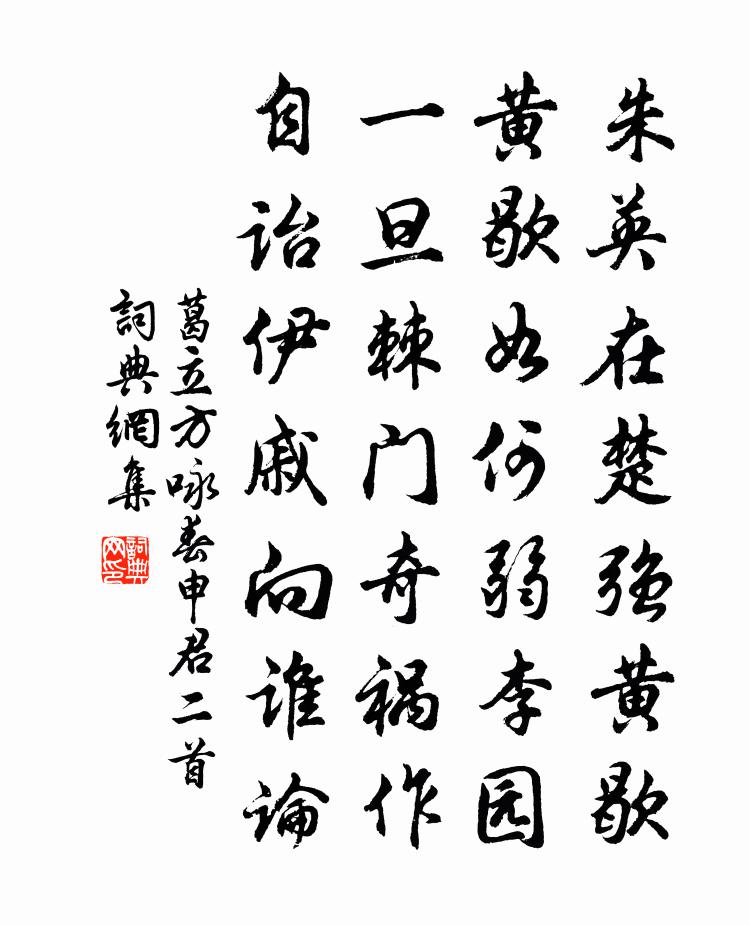 朱英在楚强黄歇
黄歇如何弱李园
一旦棘门奇祸作
自诒伊戚向谁论
葛立方咏春申君二首
詞典網集
詞典网印